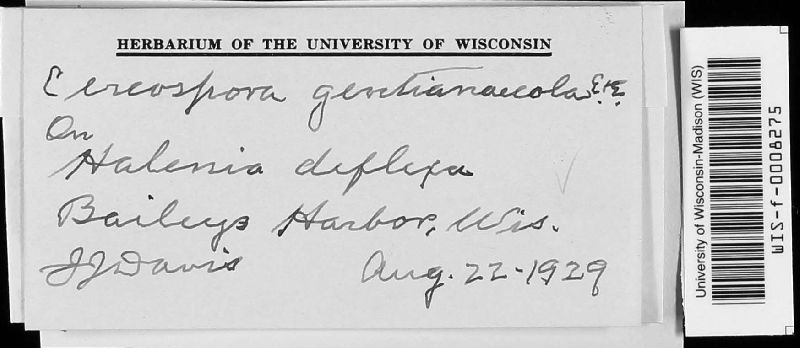 HERBARIUM OF THE UNIVERSITY OF WISCONSIN
Cercospora gentianaecola E.&E.
On
Halenia deflexa
Baileys Harbor, Wis.
JJDavis Aug. 22-1929
University of Wisconsin-Madison (WIS)
WIS-f-0008275